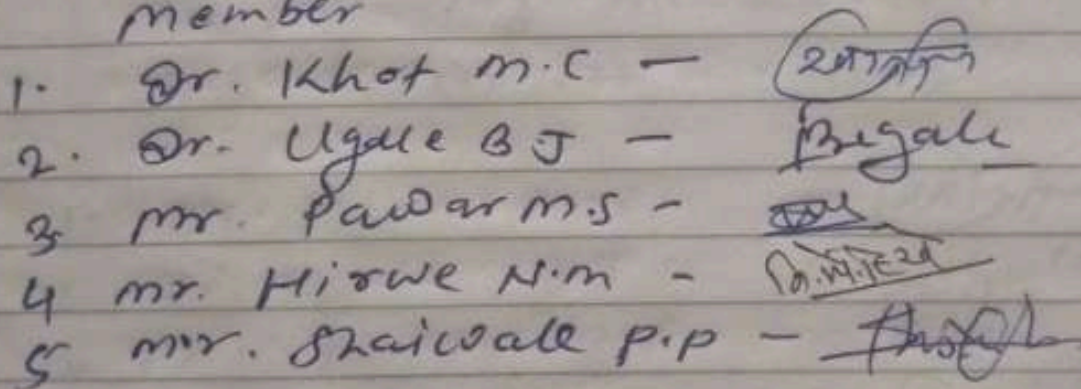 member
1. Dr. Khot m.c -
2. Dr. Ugale B J - Bugale
3 mr. Pawar m.s -
4 mr. Hirwe N.m -
5 mr. Shaiwale p.p -